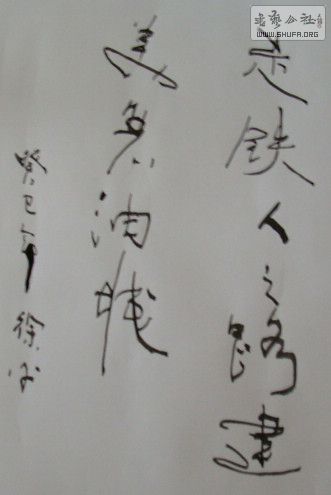 书艺公社
WWW.SHUFA.ORG
走铁人之路建
美油城
癸巳年 徐